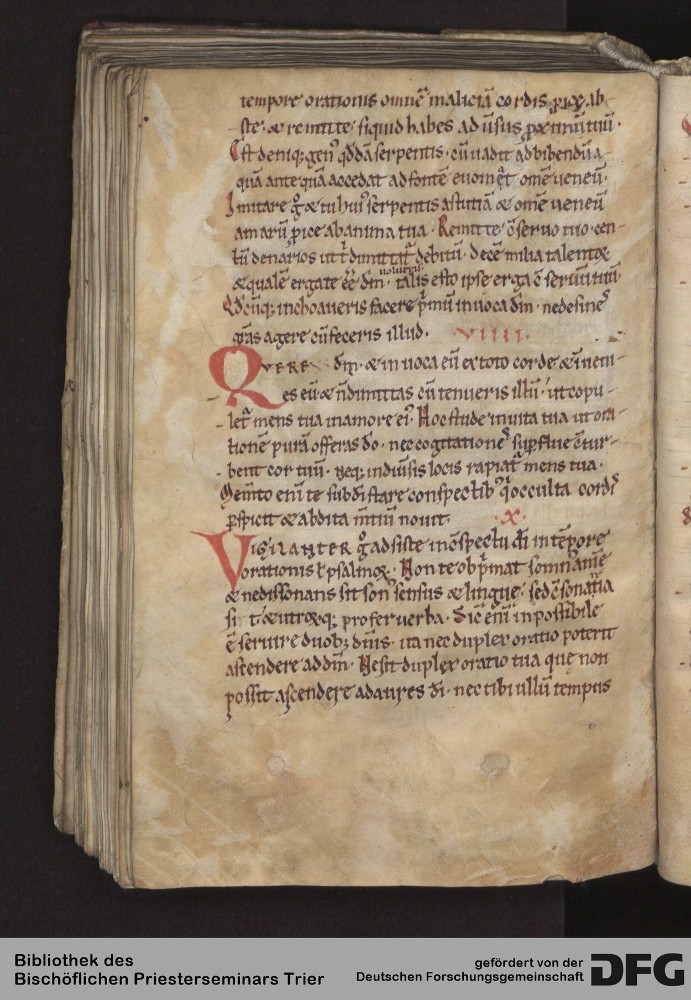 tempore orationis omnē maliciā cordis ꝓice ab
ste · & remitte · siquid habes aduersus ꝓximū tuū ·
Est deniq; gen᷒ qđdā serpentis · cū uadit adbibendū a
quā ante quā accedat adfontē euom& omē uenenū ·
Imitare g̊ & tu hui᷒ serpentis astutiā & omē uenenū
amarū ꝓice abanima tua · Remitte c̄seruo tuo cen
tū denarios ut t̄ dimittat᷑ debitū · decē milia talentoꝝ
& qualē ergate e͞e dm̄ uolueris · talis esto ipse erga c̄seruū tuū
Qđcūq; inchoaueris facere p̄mū inuoca dm̄ · nedesinas
gr̄as agere cū feceris illud . VIIII.
QVERE dm̄ · & inuoca eū extoto corde & inueni
es eū & n̄ dimittas cū tenueris illū · ut copu
let᷑ mens tua inamore ei᷒ · Hoc stude inuita tua ut ora
tionē purā offeras do̅ · nec cogitationes supflue c̄tur
bent cor tuū · Neq; indiuisis locis rapiat᷑ mens tua ·
Memto eni te sub di stare conspectib᷒ q̇ occulta cordis
ꝑspicit & abdita m̄tiū nouit . X.
VIGILANTER g̊ adsiste inc̄spectu di in tēpore
orationis ł psalmoꝝ · Non te obp̄mat somn᷒ anīe
& ne dissonans sit son᷒ sensus & lingue · sed c̄sonantia
sit & utroq; proferuerba · Sic̄ enī inpossibile
ē seruire duob; dn̄is · ita nec duplex oratio poterit
ascendere ad dm̄ · Ne sit duplex oratio tua quę non
possit ascendere adaures di · nec tibi ullū tempus
Bibliothek des
Bischöflichen Priesterseminars Trier
gefördert von der
Deutschen Forschungsgemeinschaft
DFG